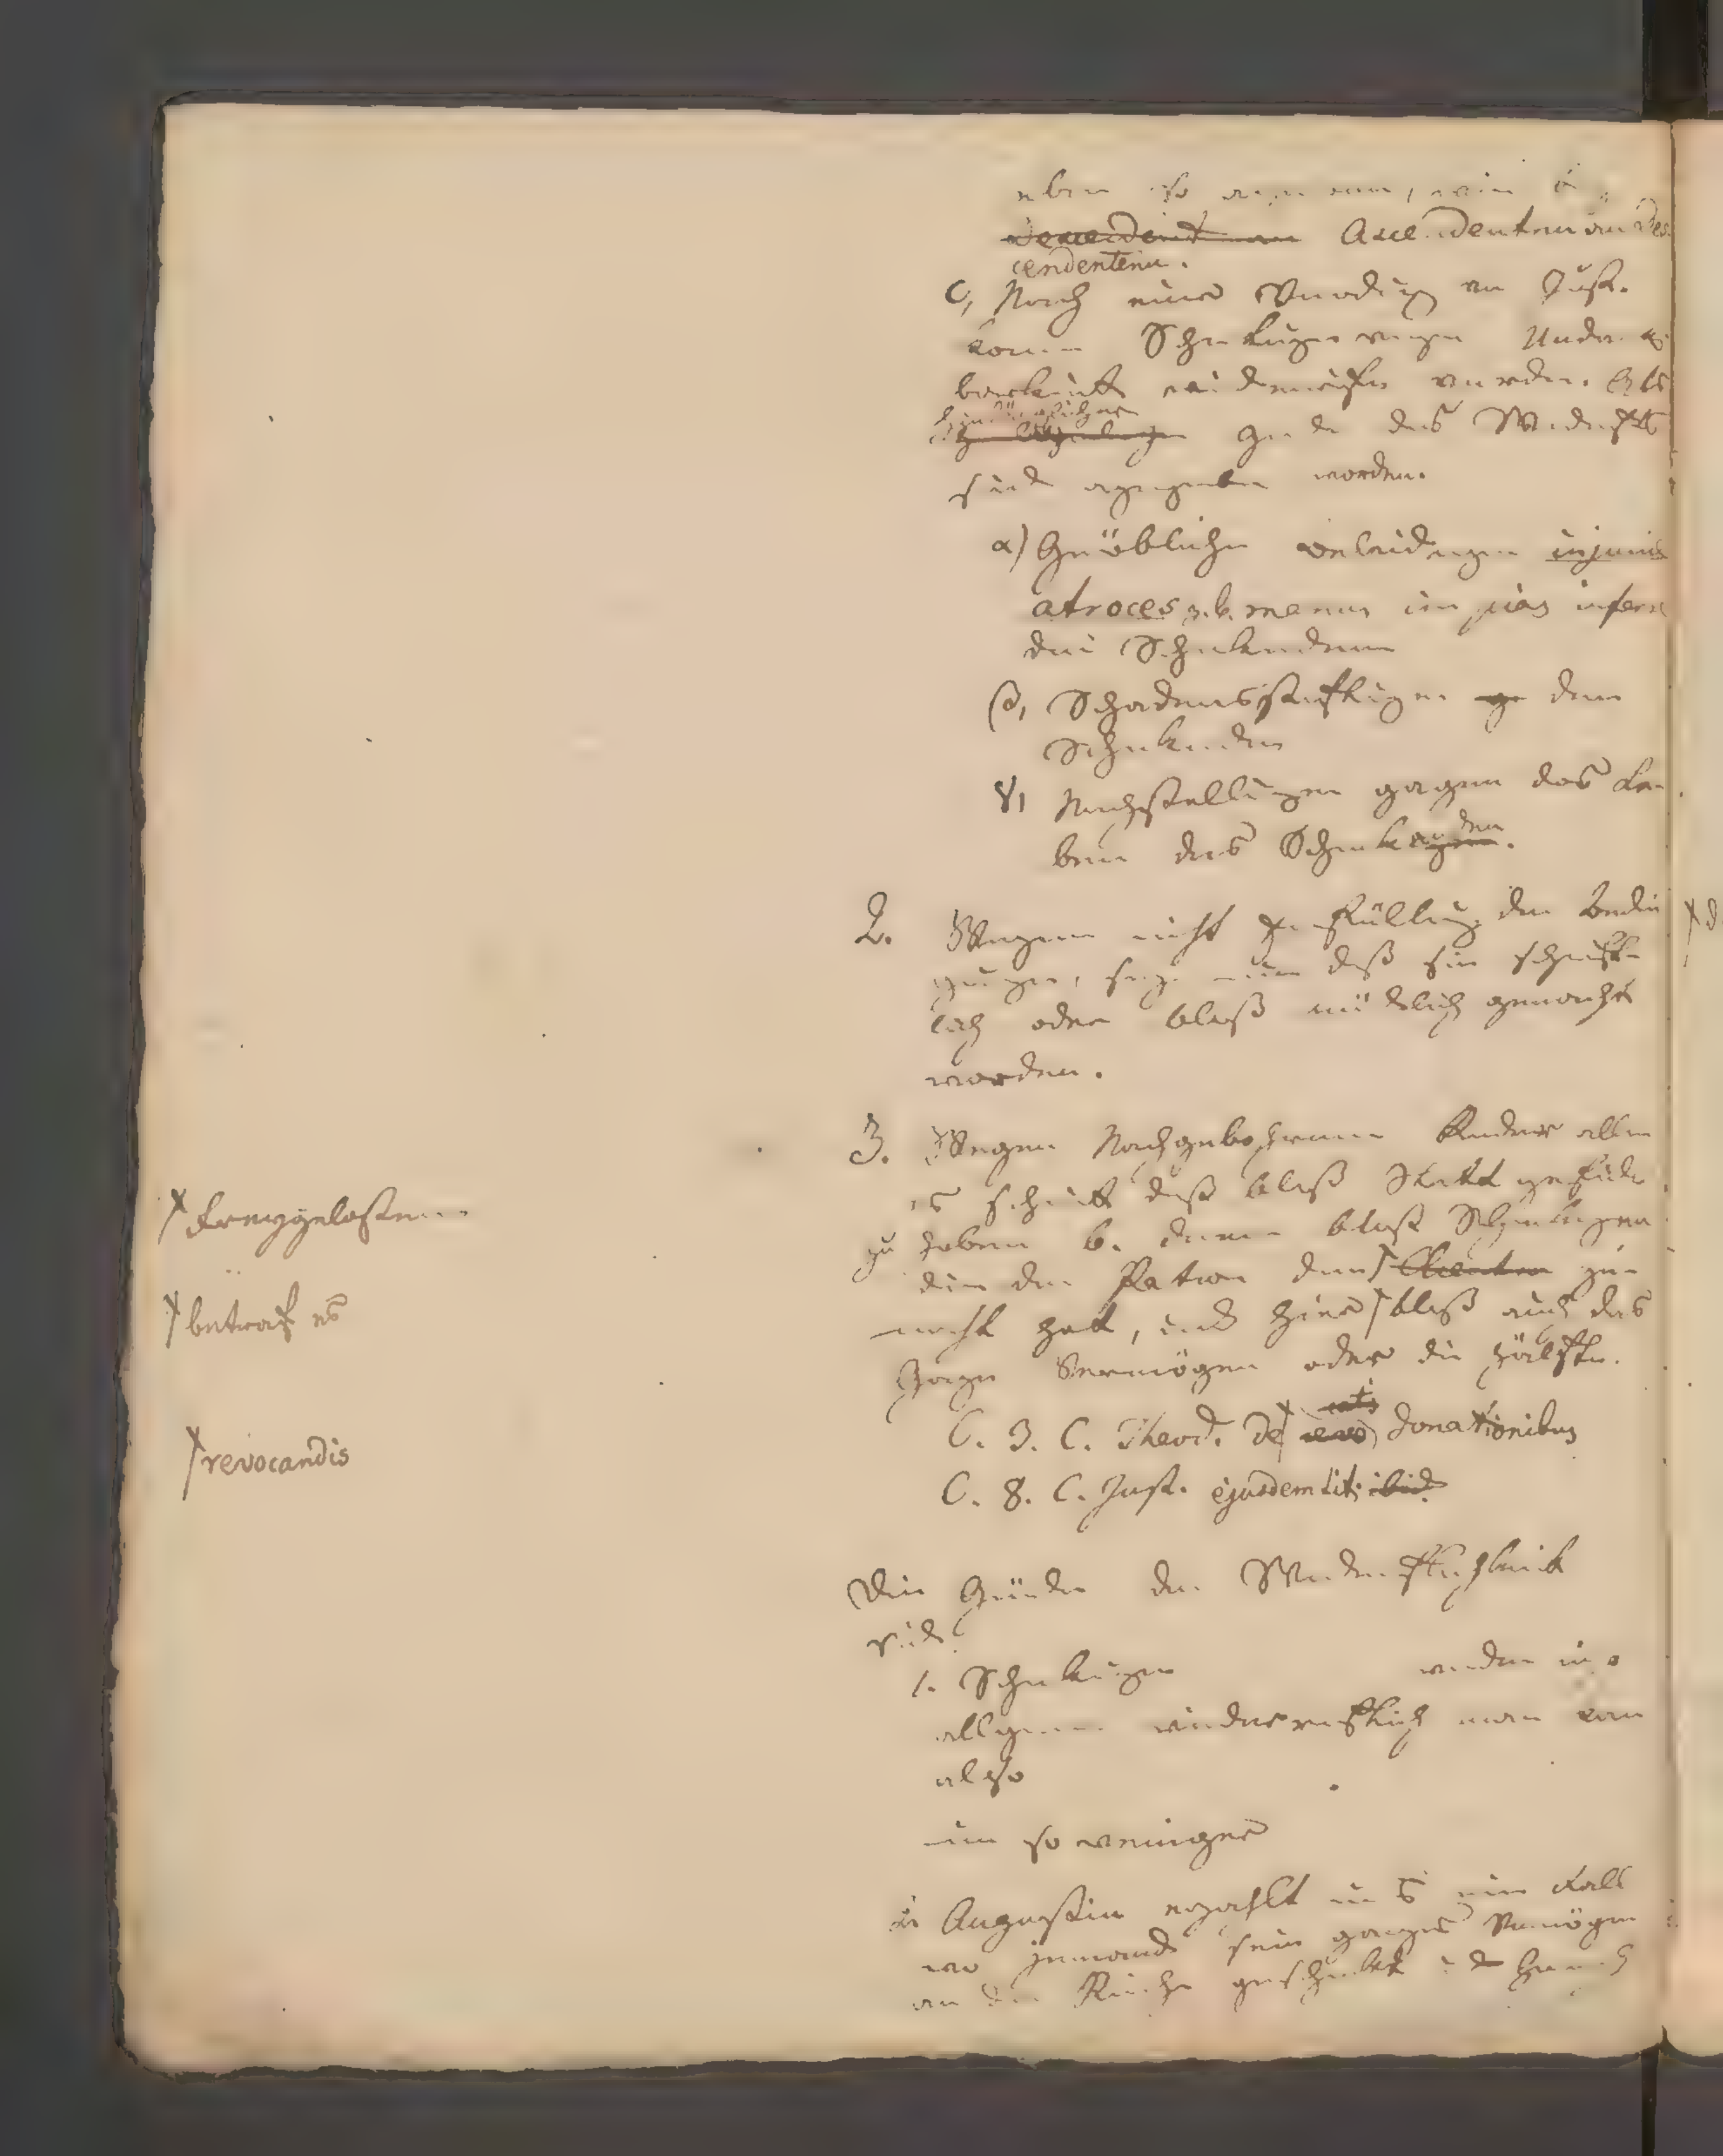 eben so
Ascendenten an Des-
cendenten.
C, Nach einer Verordng von Just.
konnen Schenkungen wegen Undank
widerrufen werden. Als
Gründe des Widerrufs
sind angegeben worden.
α) Gröbliche Beleidigungen injuriae
atroces z.b. manus impias inferre
dem Schenkenden
β, Schadensstiftungen dem
Schenkenden
γ, Nachstellungen gegen das Le-
ben des Schenkenden.
2. Wegen nicht Erfüllung der Bedin
gungen, daß sie schrift-
lich oder bloß mündlich gemacht
worden.
3. Wegen Nachgebohrener Kinder allein
es scheint daß bloß Statt gefunden
zu haben b. denen bloß Schenkungen
die der Patron dem ge-
macht hat, und hier bloß auch das
ganze Vermögen oder die Hälfte.
C. 3. C. Theod. De donationibus
C. 8. C. Just. ejusdem tit: ibid.
Die Gründe der Widerruflichkeit
sind
1. Schenkungen werden im
allgemein wiederruflich man kan
also
um so weniger
Augustin erzahlt uns ein Fall
wo jemand sein ganzes Vermögen
an die Kirche geschenkt
Freygelassenen
betraf es
revocandis